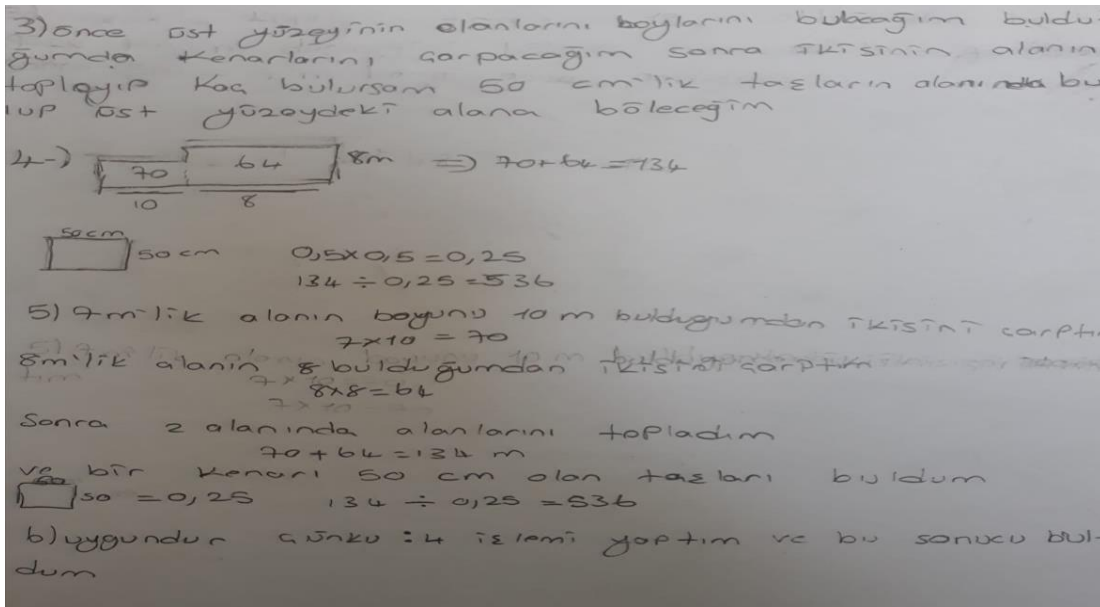 3) önce üst yüzeyinin alanlarını boylarını bulacağım buldu-
ğumda kenarlarını çarpacağım sonra ikisinin alanın
toplayıp Kaç bulursam 50 cm'lik taşların alanında bu
lup üst yüzeydeki alana böleceğim
4-) 70 64 8m => 70+64=134
10 8
50cm
50 cm 0,5x0,5=0,25
134÷0,25=536
5) 7m'lik alanın boyunu 10 m bulduğumdan ikisini çarptı
7x10=70
8m'lik alanin 8 bulduğumdan ikisini çarptım
8x8=64
Sonra 2 alanında alanlarını topladım
70+64=134 m
ve bir kenarı 50 cm olan taşları buldum
50 =0,25 134÷0,25=536
b) uygundur Çünkü: 4 işlemi yaptım ve bu sonucu bul-
dum